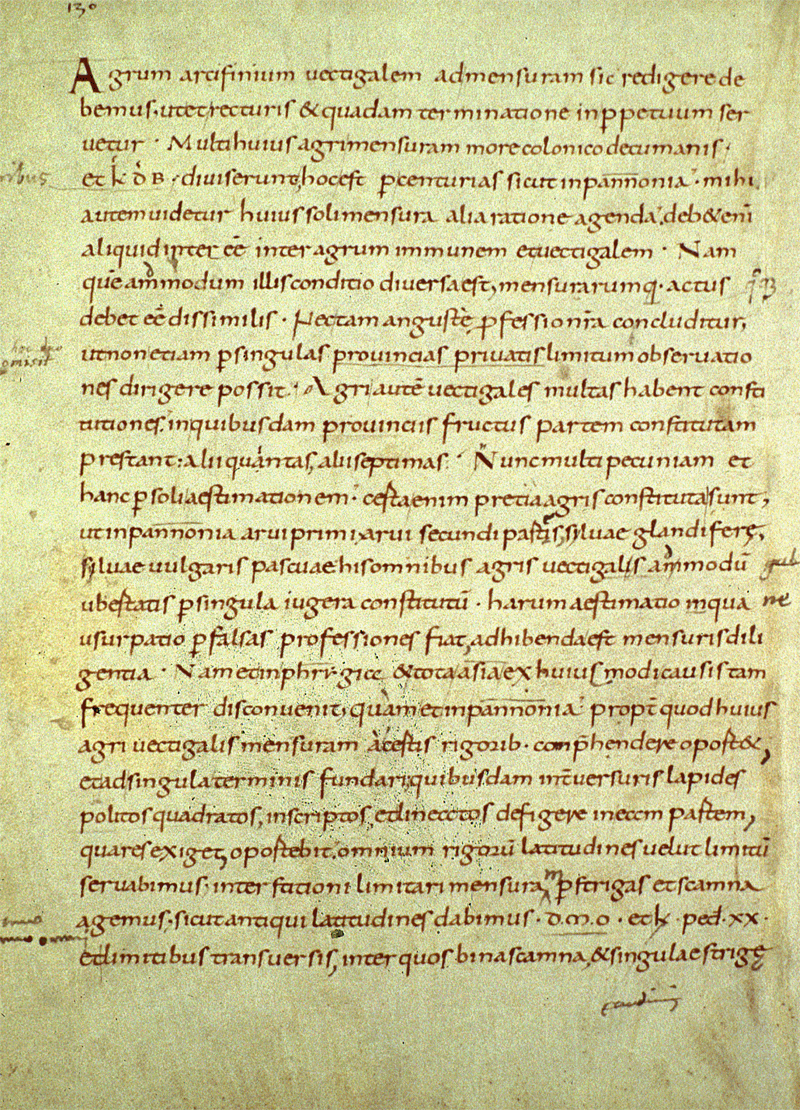 130
Agrum arcifinium uectigalem admensuram sic redigere de
bemus. utet recturis & quadam terminatione inppetuum ser
uetur · Multi huius agri mensuram more colonico decumanis ·
et k̄ D̄B · diuiserunt, hocest p centurias sicut inpannonia · mihi
autem uidetur huius soli mensura alia ratione agenda. deb& enī
aliquid inter eē inter agrum immunem et uectigalem · Nam
quēammodum illis conditio diuersa est, mensurarumq · actus
debet eē dissimilis · Nec tam angustē p fession r̄a concluditur,
ut non etiam p singulas prouincias priuatis limitum obseruatio
nes dirigere possit · Agri autē uectigales multas habent consti
tutiones, inquibusdam prouinciis fructus partem constitutam
prestant: alii quantas, alii septimas · Nunc multi pecuniam et
hanc p soli aestimationem · certa enim pretia agris constituta sunt,
ut inpannonia arui primi, arui secundi pastis, syluae glandiferę,
syluae uulgaris pascuae his omnibus agris uectigalis ammodū
ubestatis p singula iugera constitutū · harum aestimatio inqua
usurpatio p falsas professiones fiat, adhibenda est mensuris dili
gentia · Nam et inphrygice & tota asia ex huiusmodi causis tam
frequenter disconuenit, quam et inpannonia propt̄ quod huius
agri uectigalis mensuram acestis rigorib · conp̄hendere opost&,
et ad singula terminis fundari, quibusdam int̄uersuris lapides
politos quadratos, inscriptos, et lineetos defigere ineccm pastem,
quares exiget, opostebit. omnium rigorū latitudines uelut limitū
seruabimus. interstationi limitari mensura p strigas et scamna
agemus. sicut antiqui latitudines dabimus · D.M.O · et k · ped · xx ·
et limitibus transuersis, inter quos bina scamna, & singulae strigę